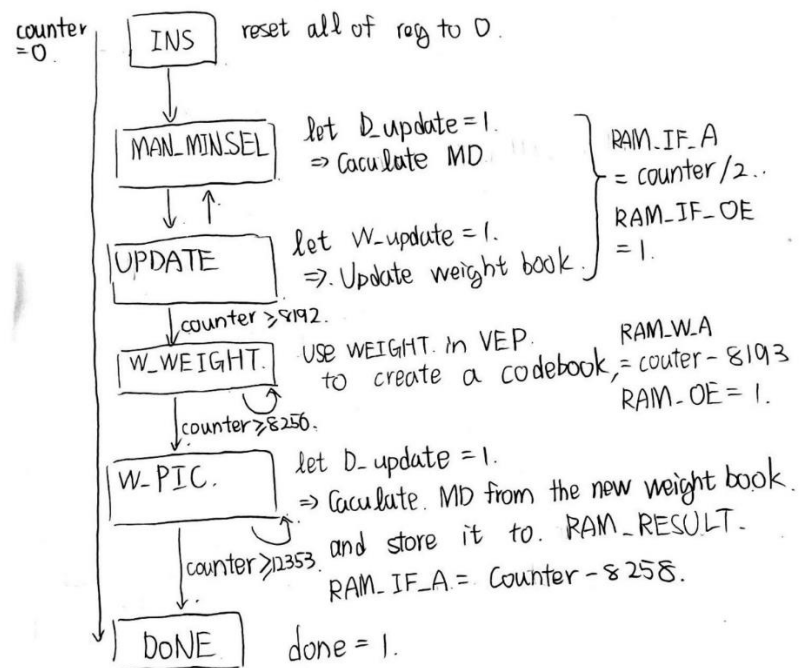 counter
=0.
INS
reset all of reg to 0.
MAN_MINSEL
let D_update=1.
⇒ Caculate MD
RAM_IF_A
= counter/2..
RAM_IF_OE
=1.
UPDATE
let W_update=1.
⇒. Update weight book.
counter≥8192.
W_WEIGHT.
USE WEIGHT. in VEP.
to create a codebook,
RAM_W_A
= couter-8193
RAM_OE=1.
counter≥8256.
W_PIC.
let D_update=1.
⇒ Caculate. MD from the new weight book.
and store it to. RAM_RESULT.
RAM_IF_A.= Counter-8258.
counter≥12353.
DoNE
done=1.